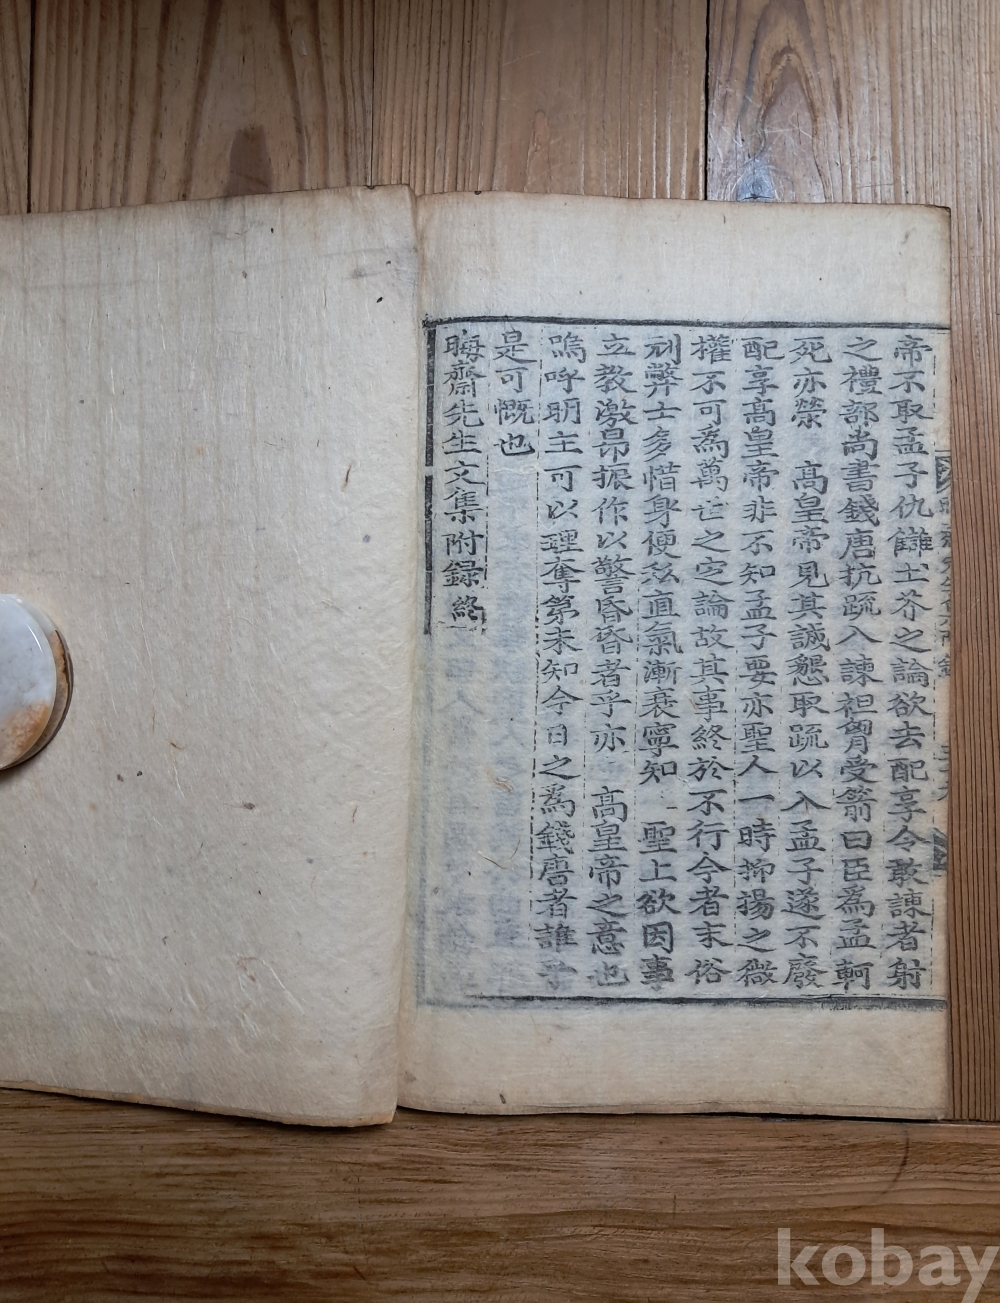 帝不取孟子仇讎土芥之論欲去配享令敢諫者射
之禮部尚書錢唐抗疏入諫袒胷受箭曰臣爲孟軻
死亦榮 高皇帝見其誠懇取疏以入孟子遂不廢
配享高皇帝非不知孟子要亦聖人一時抑揚之微
權不可爲萬世之定論故其事終於不行今者末俗
刓弊士多惜身便私直氣漸衰寧知 聖上欲因事
立教激昂振作以警昏昏者乎亦 高皇帝之意也
嗚呼明主可以理奪第未知今日之爲錢唐者誰乎
是可慨也
晦齋先生文集附録終
kobay